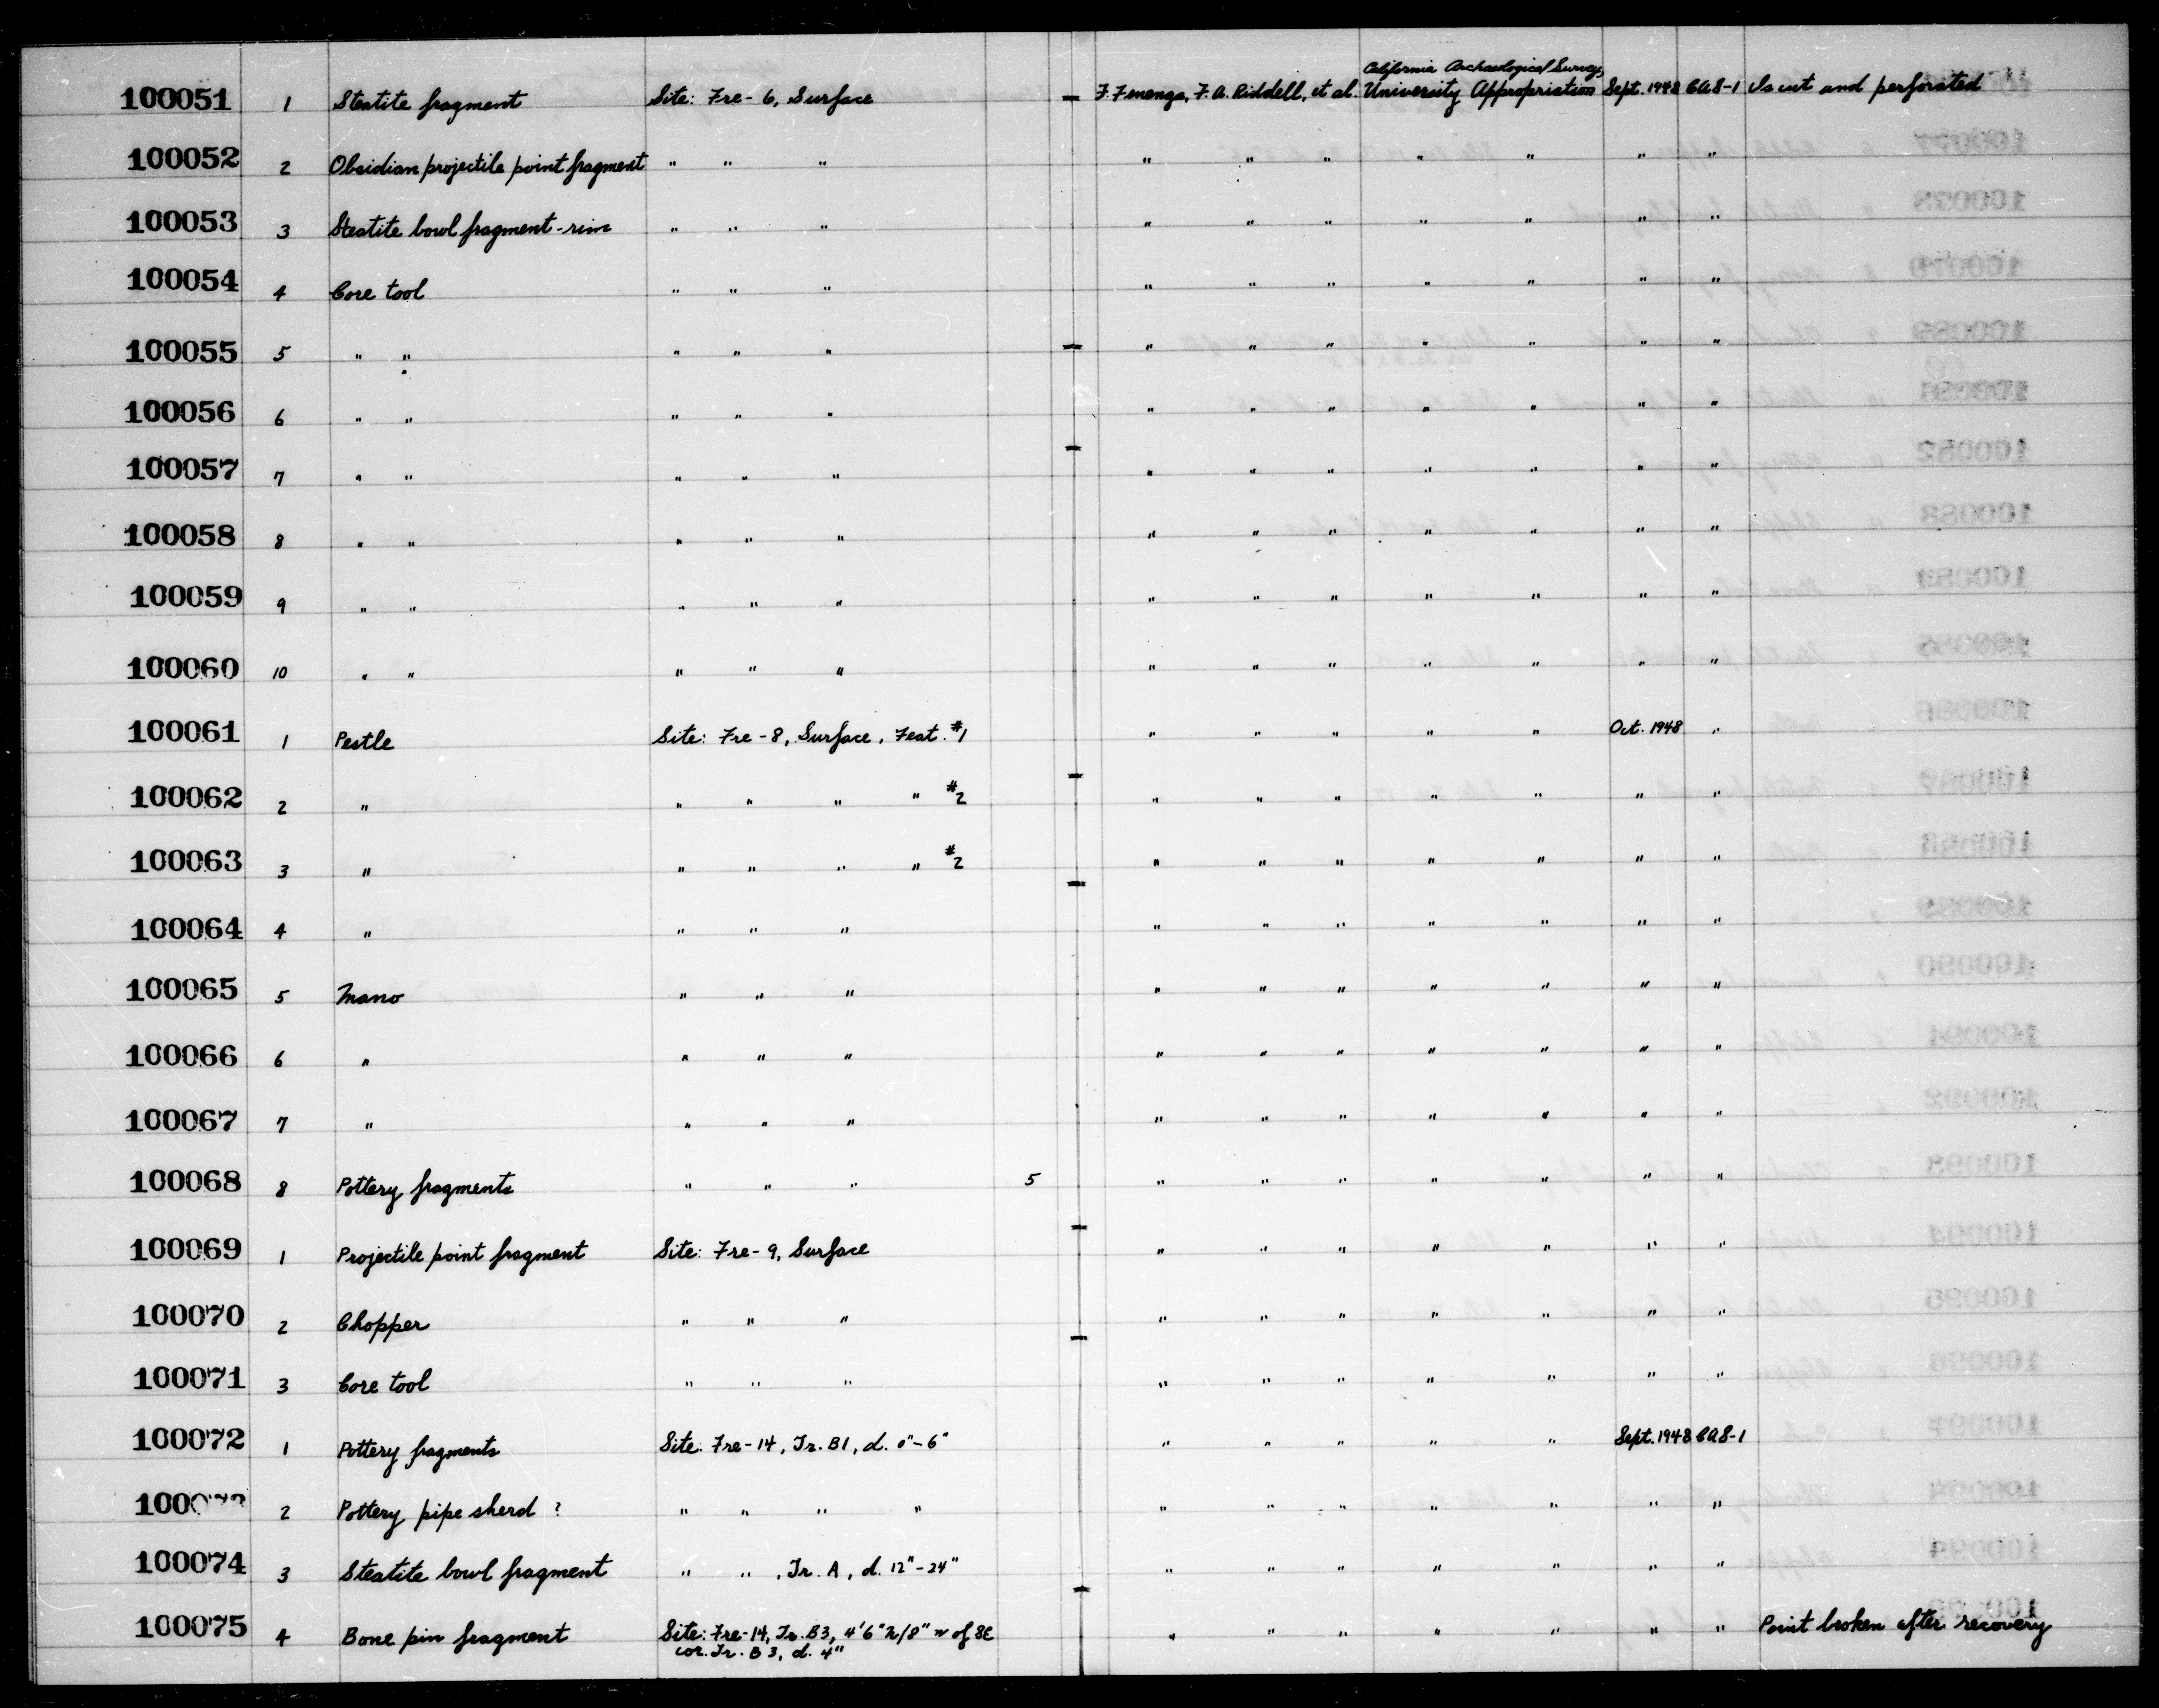 California Archaeological Survey,
100051 1 Steatite fragment Site: Fre-6, Surface F. Fenenga, F.A. Riddell, et al. University Appropriation Sept. 1948 CAS-1 Is cut and perforated
100052 2 Obsidian projectile point fragment " " " " " " " " " "
100053 3 Steatite bowl fragment-rim " " " " " " " " " "
100054 4 Core tool " " " " " " " " " "
100055 5 " " " " " " " " " " " "
100056 6 " " " " " " " " " " " "
100057 7 " " " " " " " " " " " "
100058 8 " " " " " " " " " " " "
100059 9 " " " " " " " " " " " "
100060 10 " " " " " " " " " " " "
100061 1 Pestle Site: Fre-8, Surface, Feat. #1 " " " " " Oct. 1948 "
100062 2 " " " " " #2 " " " " " " "
100063 3 " " " " " #2 " " " " " " "
100064 4 " " " " " " " " " " "
100065 5 Mano " " " " " " " " " "
100066 6 " " " " " " " " " " "
100067 7 " " " " " " " " " " "
100068 8 Pottery fragments " " " 5 " " " " " " "
100069 1 Projectile point fragment Site: Fre-9, Surface " " " " " " "
100070 2 Chopper " " " " " " " " " "
100071 3 Core tool " " " " " " " " " "
100072 1 Pottery fragments Site: Fre-14, Tr. B1, d. 0"-6" " " " " " Sept. 1948 CAS-1
100073 2 Pottery pipe sherd ? " " " " " " " " " " "
100074 3 Steatite bowl fragment " " , Tr. A, d. 12"-24" " " " " " " "
100075 4 Bone pin fragment Site: Fre-14, Tr. B3, 4'6" N/8" W of SE " " " " " " " Point broken after recovery
cor. Tr. B3, d. 4"